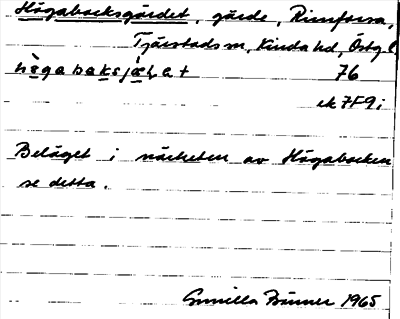 Högabocksgärdet, gärde, Rimforsa,
Tjärstads sn, Kinda hd, Östg l
76
ek 7F9i
Beläget i närheten av Högabocken
se detta.
Gunilla 1965